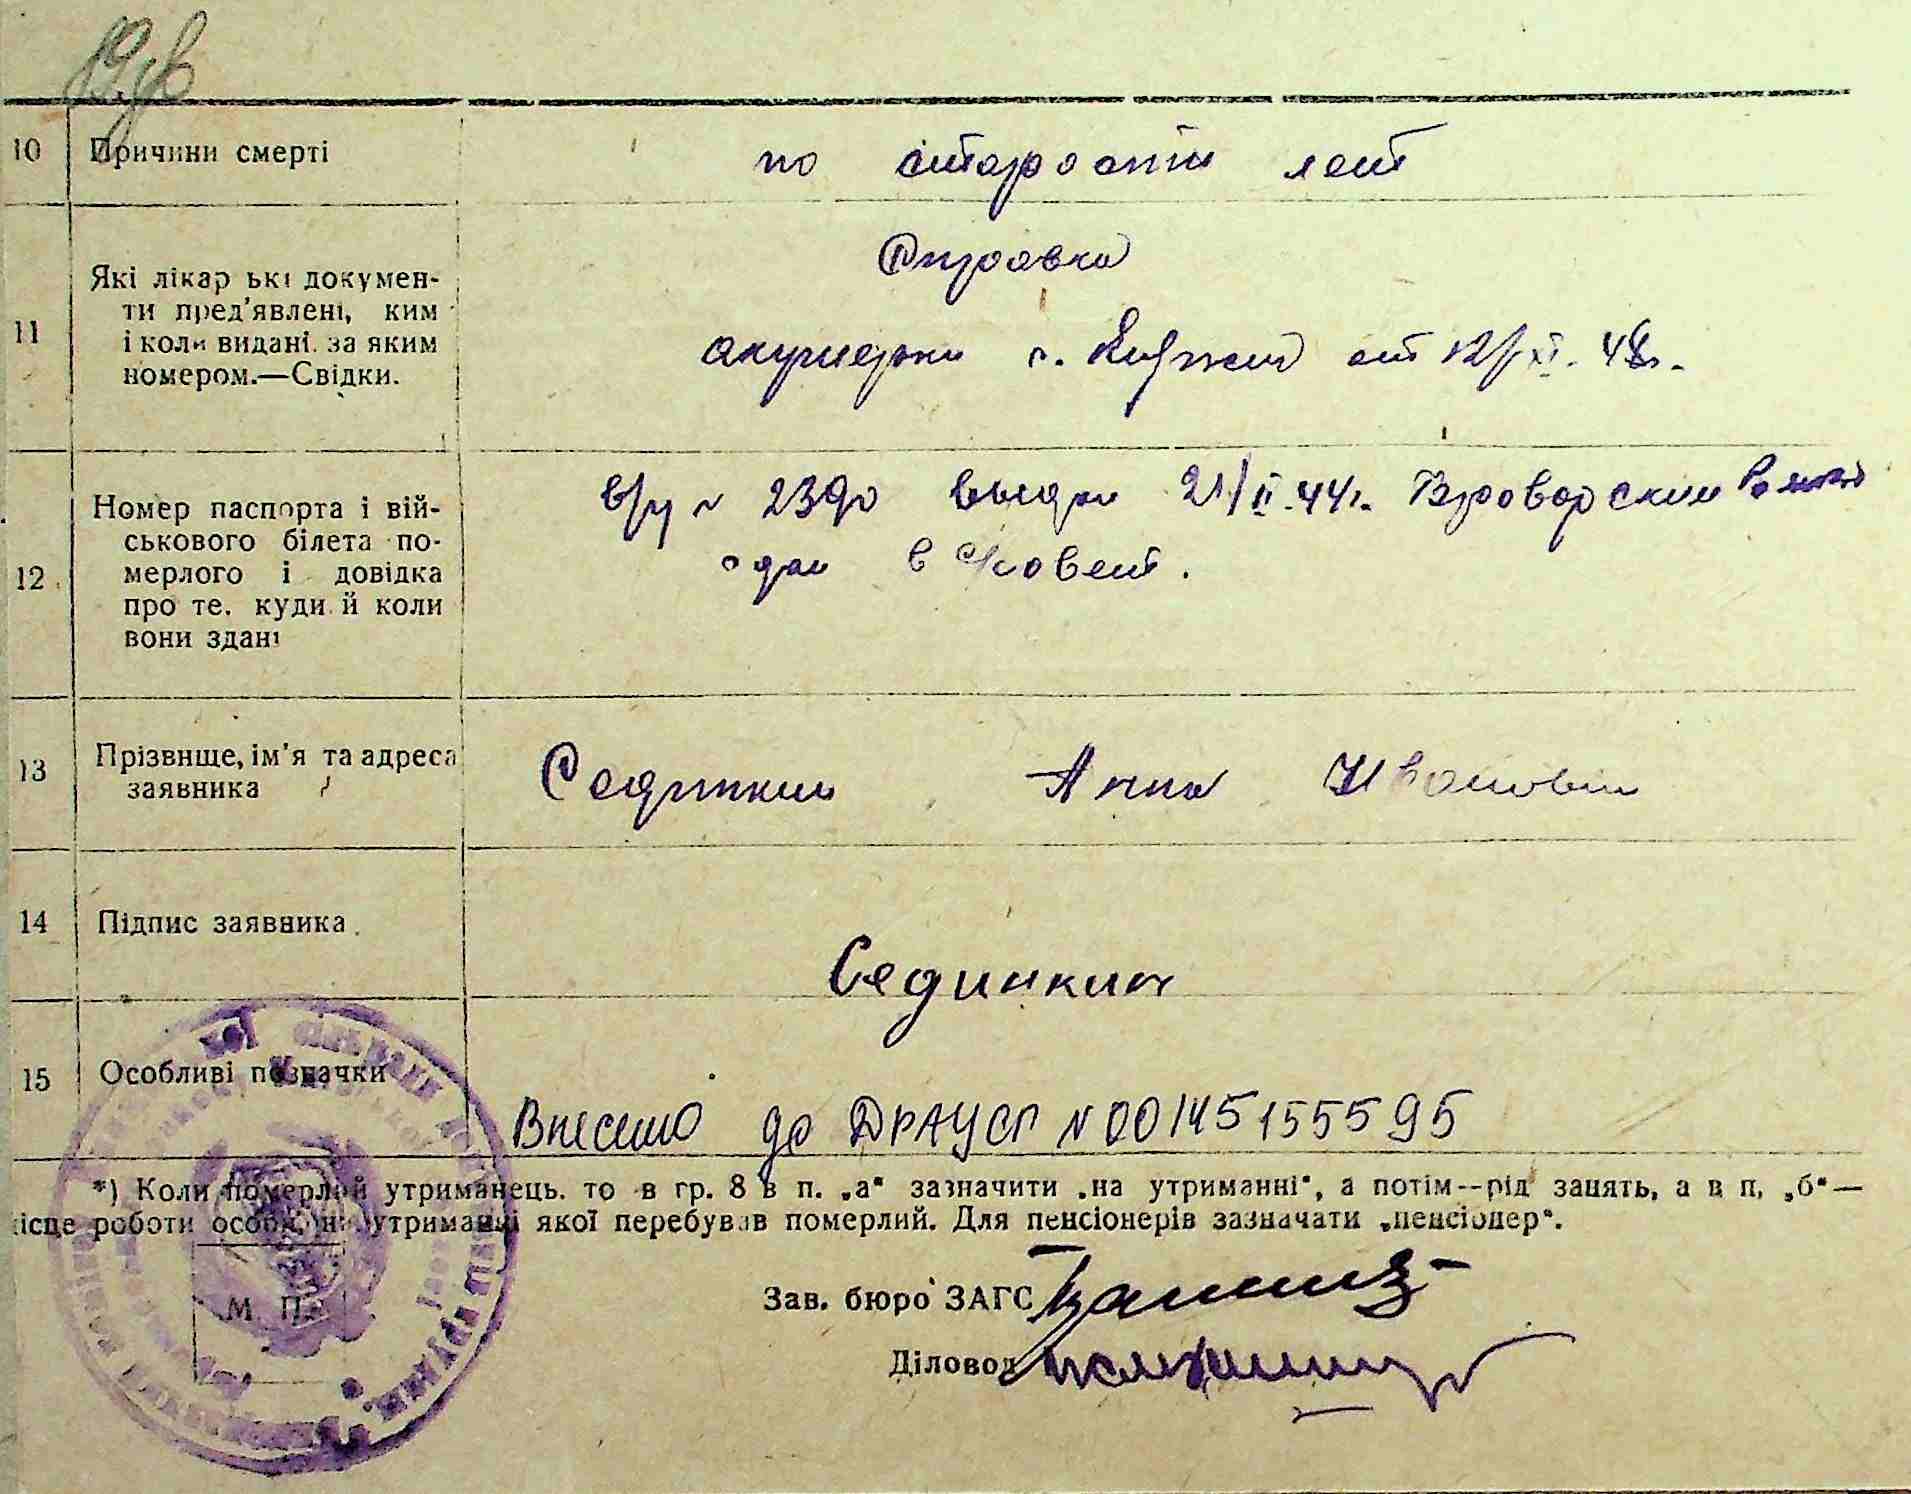 10 Причини смерті
по старости лет
11 Які лікар ькі докумен-
ти пред'явлені, ким
і коли видані. за яким
номером.—Свідки.
Справка
акушерки с. от 12/XI. 48г.
12 Номер паспорта і вій-
ськового білета по-
мерлого і довідка
про те. куди й коли
вони здані
в/у N выдан 21/II.44г. Броварским
сдан в
13 Прізвище, ім'я та адреса
заявника
Анна Ивановна
14 Підпис заявника
Сединкин
15 Особливі позначки
Внесено до ДРАЦСГ N 00145155595
*) Коли померлий утриманець. то в гр. 8 в п. „а“ зазначити „на утриманні“, а потім—рід занять, а в п, „б“—
місце роботи особи, на утриманні якої перебував померлий. Для пенсіонерів зазначати „пенсіонер“.
Зав. бюро ЗАГС
Діловод
М П.